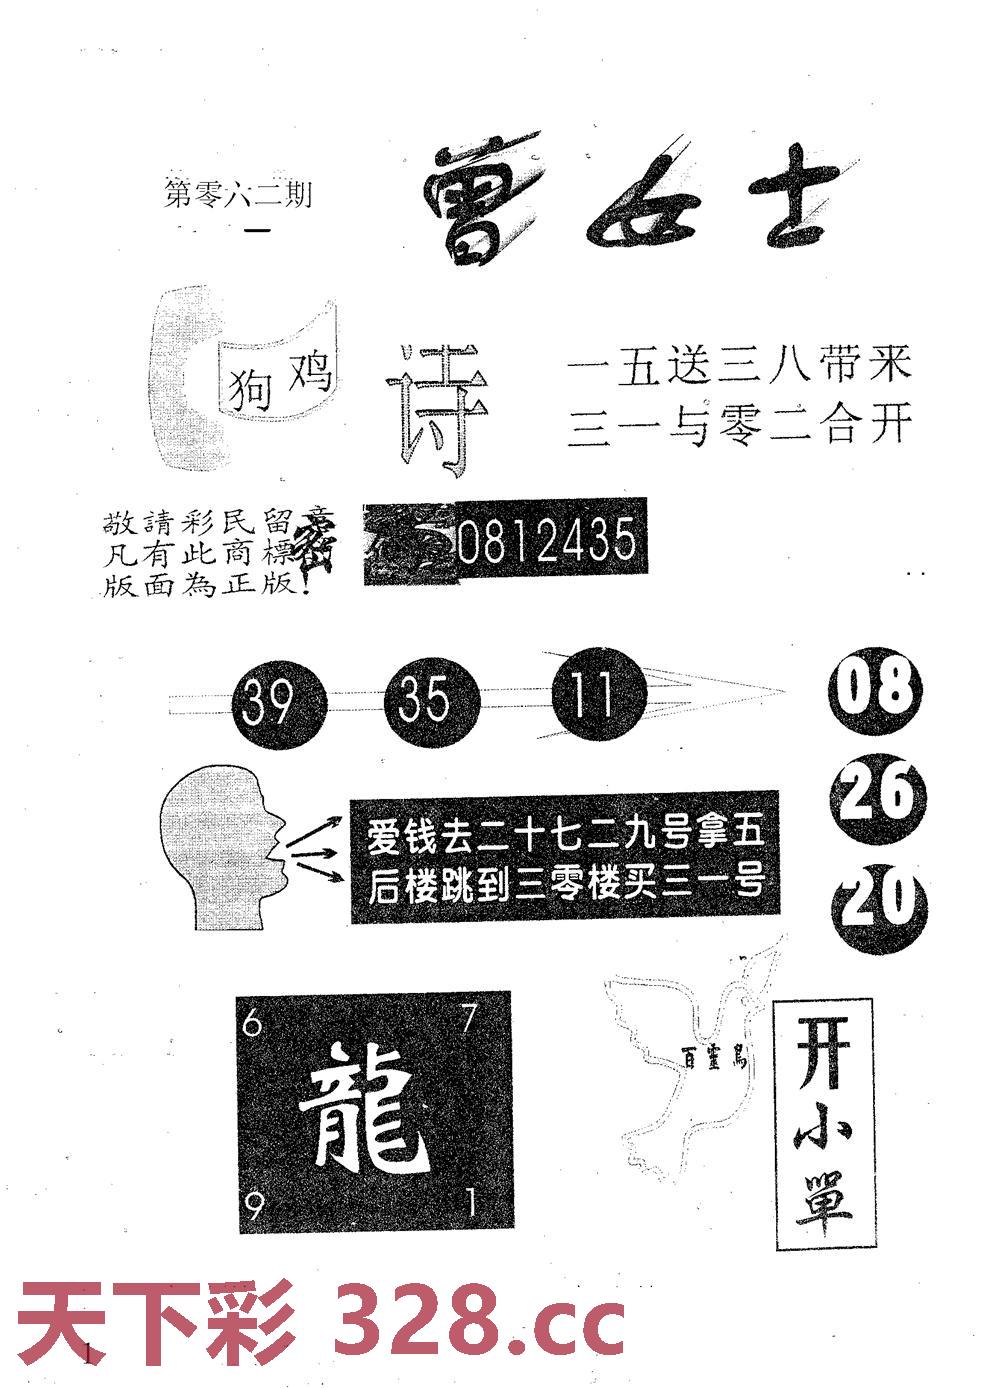 第零六二期
曾女士
狗 鸡
诗
一五送三八带来
三一与零二合开
敬請彩民留意
凡有此商標
版面為正版!
密
0812435
39 35 11
08
26
20
爱钱去二十七二九号拿五
后楼跳到三零楼买三一号
6 7
龍
9 1
百靈鳥
开小單
天下彩 328.cc
1